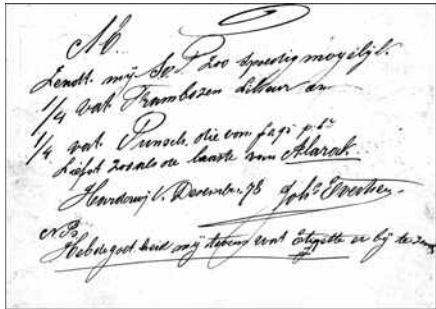 M E.
Zendt mij S.V.P. zoo spoedig mogelijk
1/4 vat Frambozen Likeur en
1/4 vat Punsch, die van f
Liefst zooals de laatste van Alarak.
Harderwijk. December 98 Joh
NB
Heb de goedheid mij tevens wat Etiquette er bij te